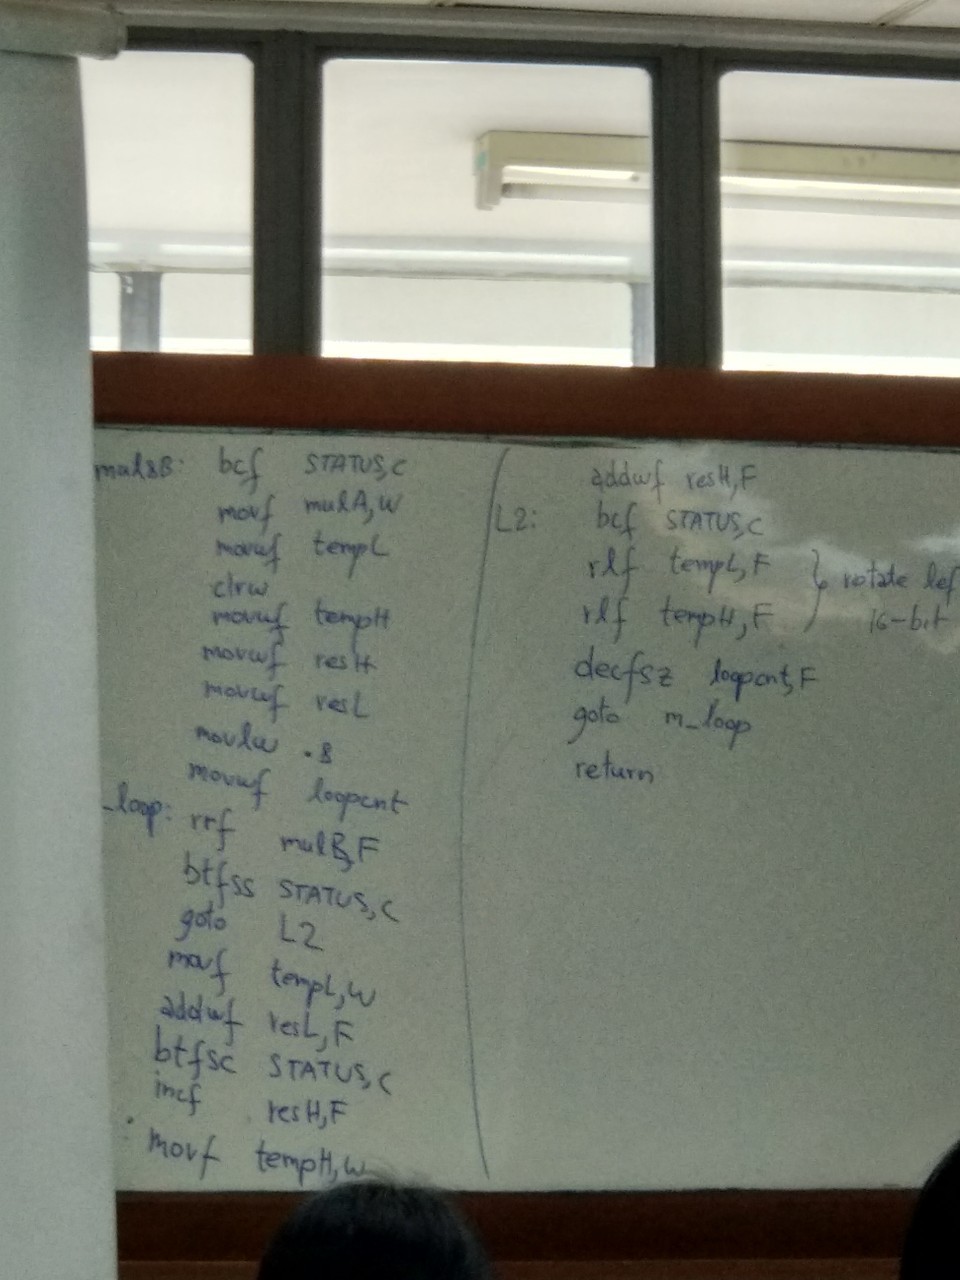 mul8B: bcf STATUS,C
movf mulA,W
movwf tempL
clrw
movwf tempH
movwf resH
movwf resL
movlw .8
movwf loopcnt
_loop: rrf mulB,F
btfss STATUS,C
goto L2
movf tempL,W
addwf resL,F
btfsc STATUS,C
incf resH,F
movf tempH,W
addwf resH,F
L2: bcf STATUS,C
rlf tempL,F
rlf tempH,F
rotate lef
16-bit
decfsz loopcnt,F
goto m_loop
return